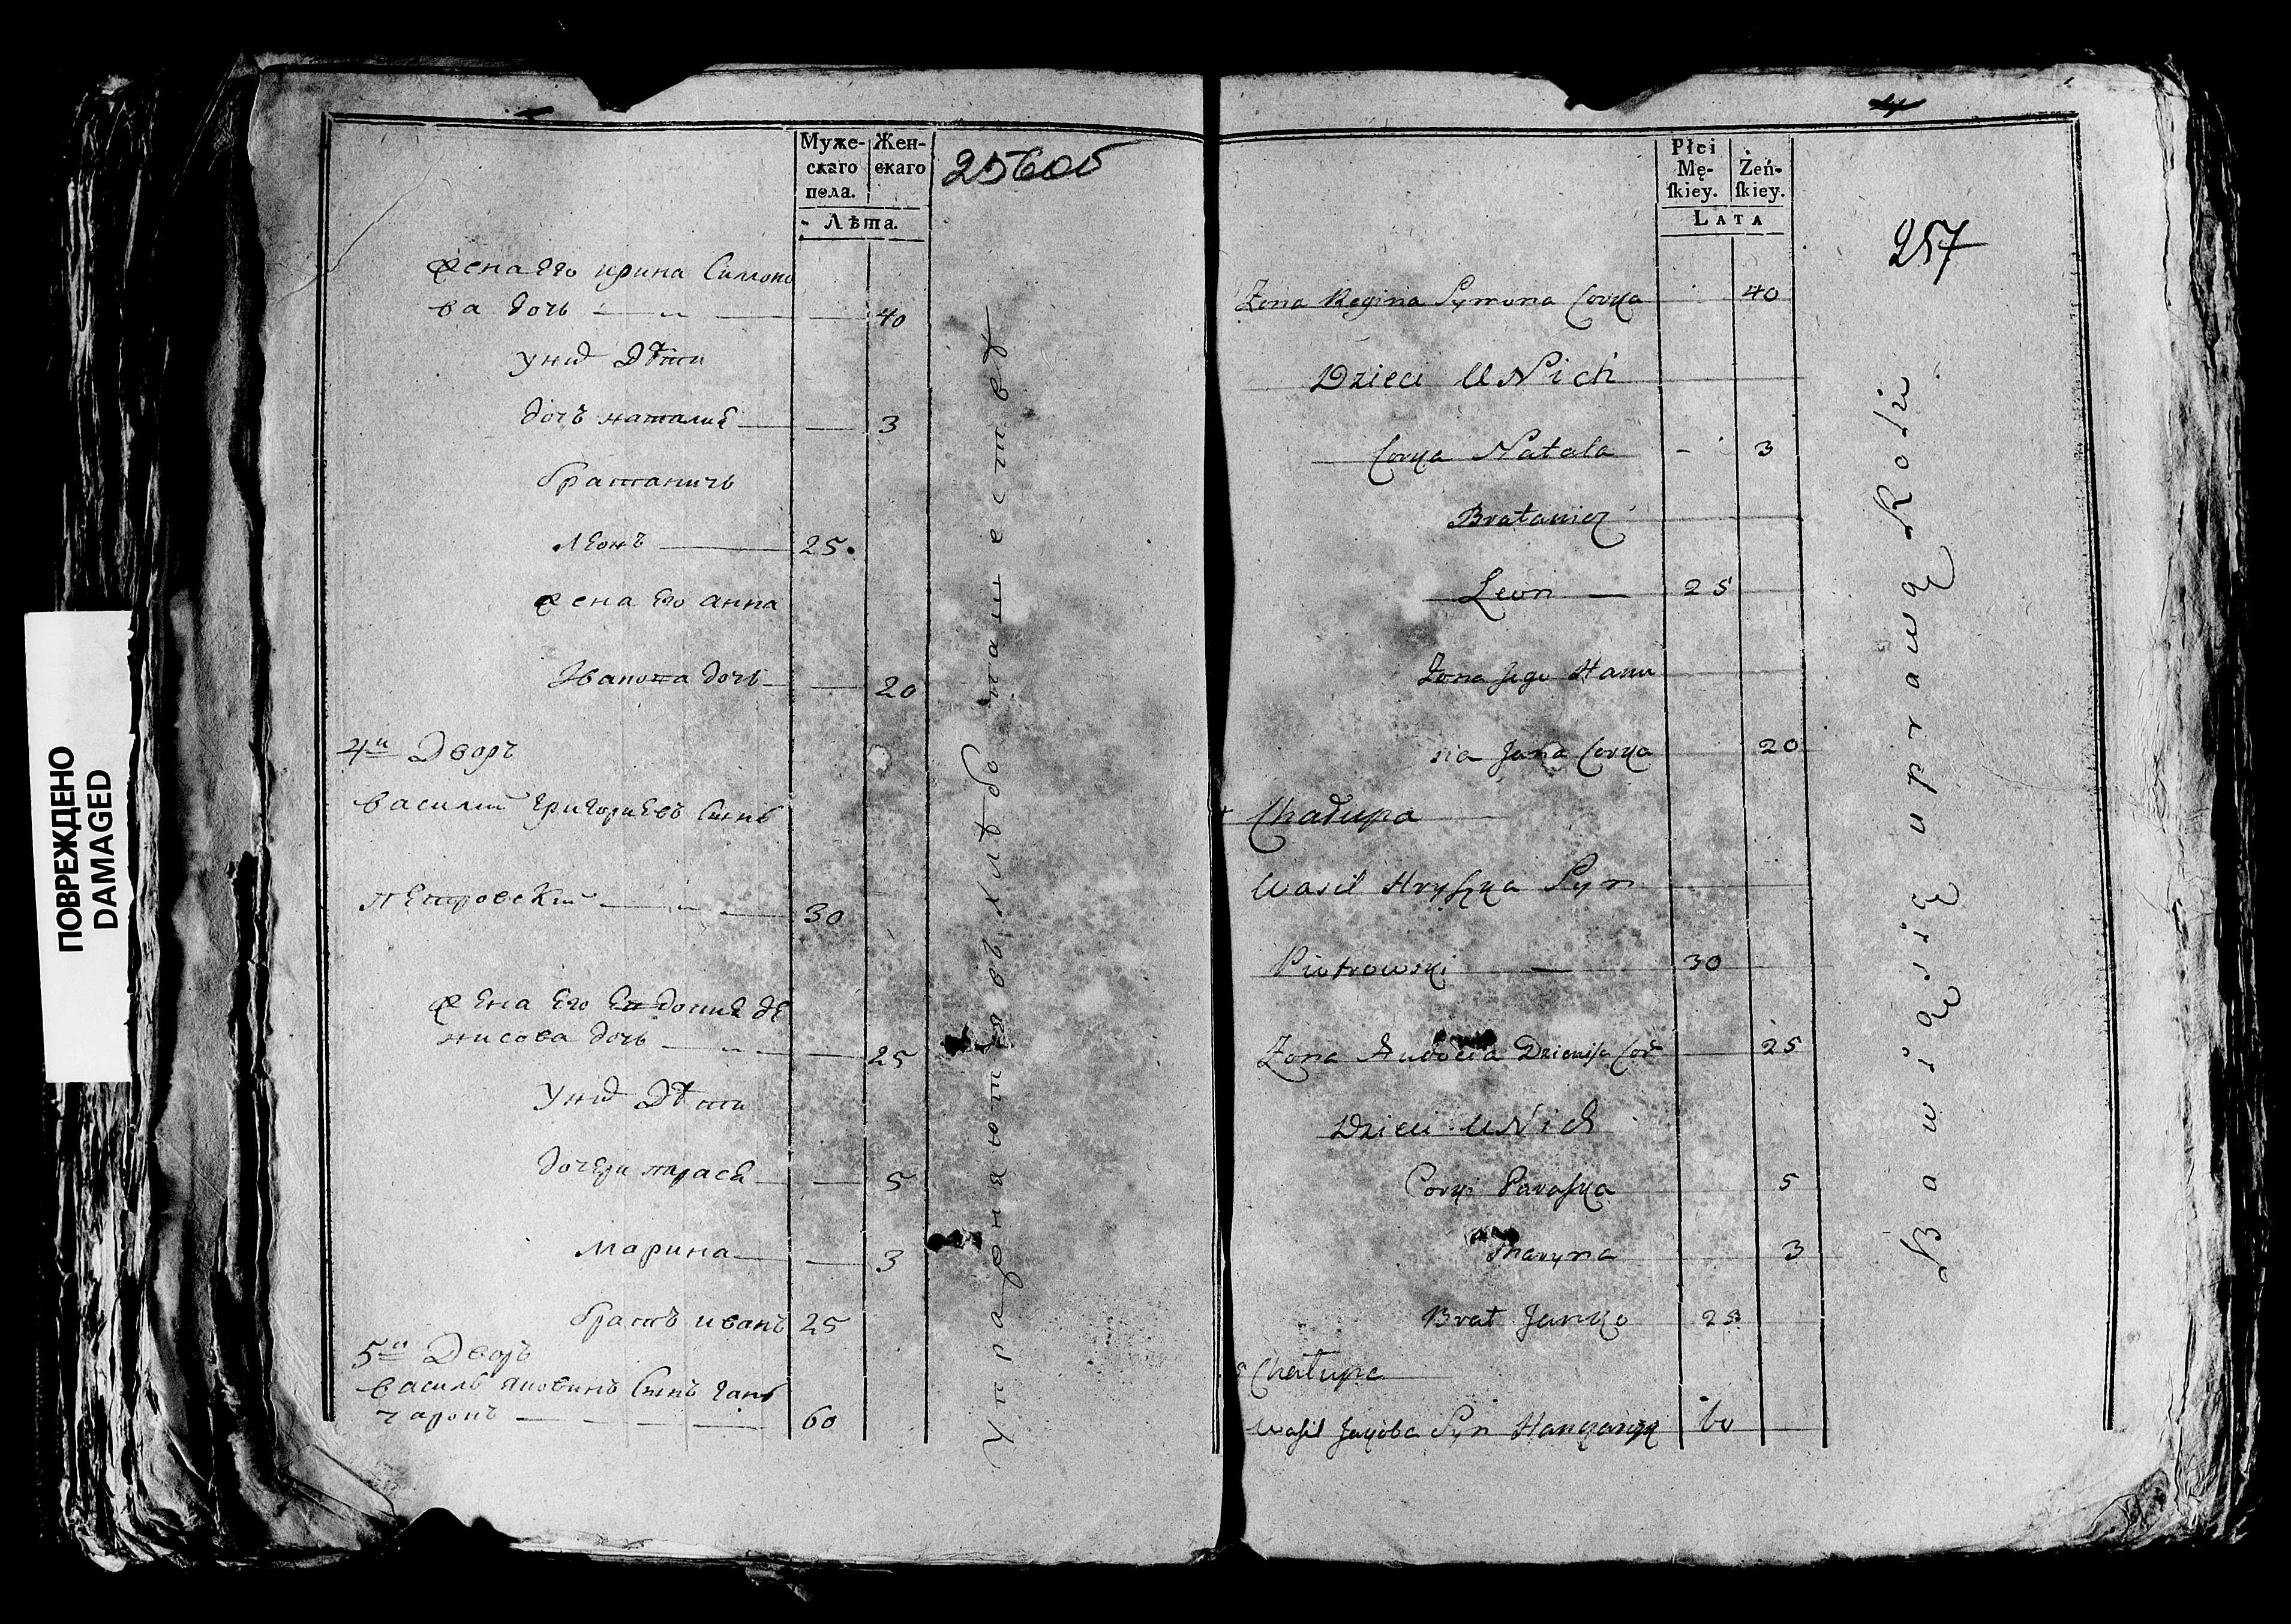 Муже-
скаго
пола.
Жен-
скаго
Лѣта.
256об
жена его ирина Симоно
ва дочь 40
у нихъ Дѣти
дочь наталия 3
братаничь
леонъ 25.
жена его анна
Иванова дочь 20
4й Дворъ
василий григориевъ Сынъ
петровский 30
жена его Евдокия де
нисова дочь 25
у нихъ Дѣти
дочери парася 5
марина 3
братъ иванъ 25
5й Дворъ
василь яковинъ Сынъ ганъ
чаронъ 60
Упражняются въ хлѣбопашествѣ
Płci
Mę-
ſkiey.
Żeń-
ſkiey.
LATA
257
Zona Regina Symona Corka 40
Dzieci U Nich
Corka Natala 3
Bratanicz
Leon 25
Zona jego Hanu
sia Jana Corka 20
Chałupa
Wasil Hryszka Syn
Piotrowski 30
Zona Audocia Dzienisa Cor
25
Dzieci U Nich
Corki Paraszka 5
Maryna 3
Brat Janko 25
Chałupa
Wasil Jakoba Syn 60
Bawią się uprawą Roli
ПОВРЕЖДЕНО
DAMAGED